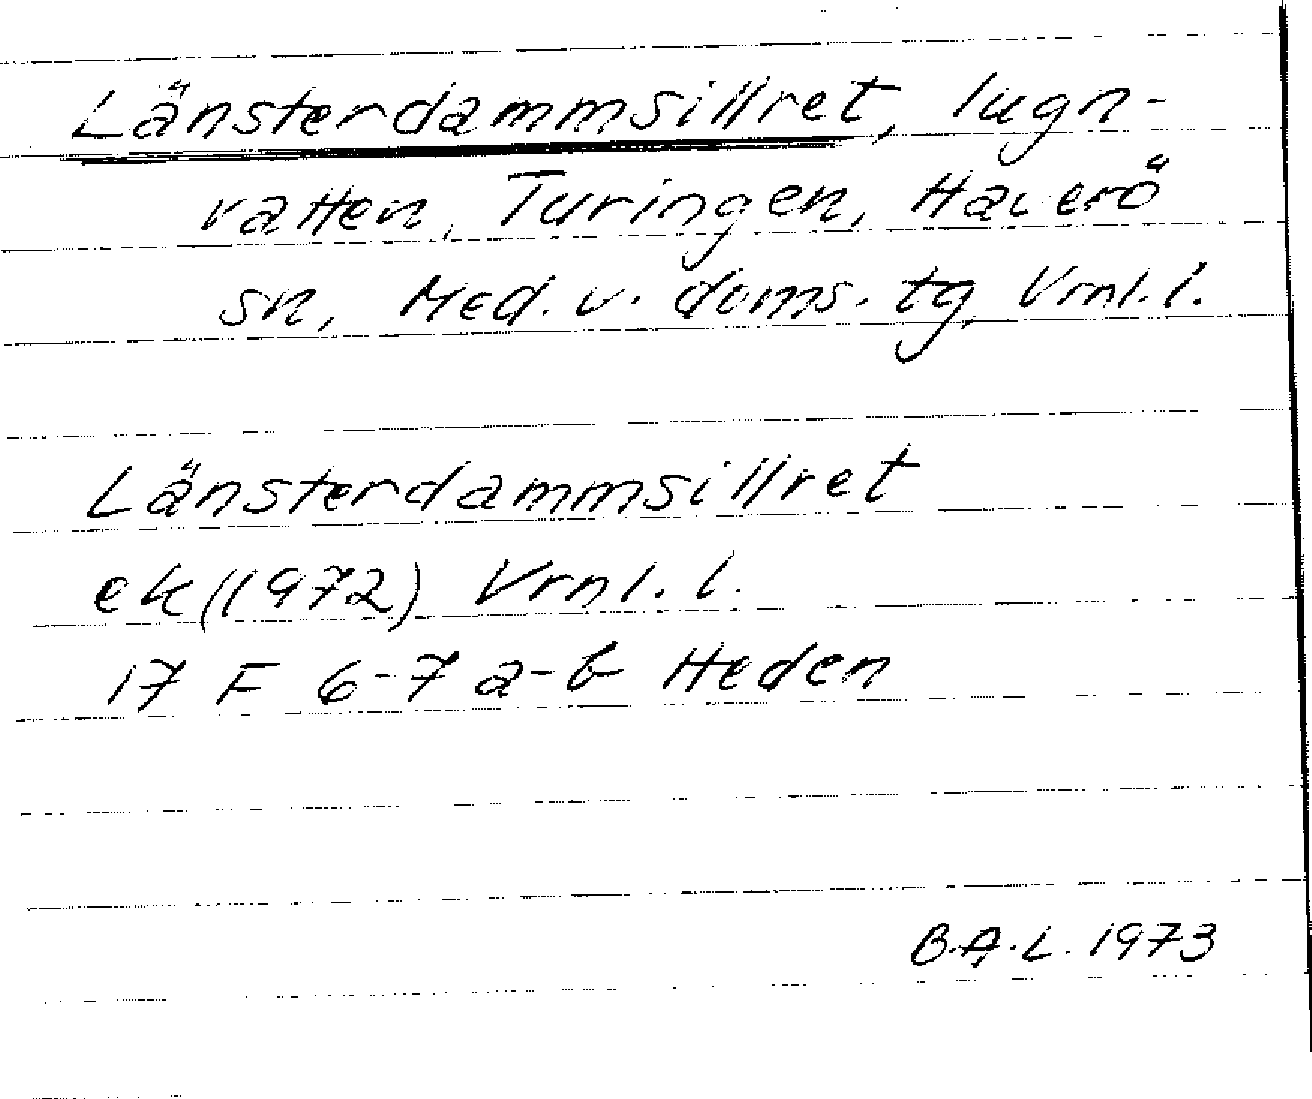 Länsterdammsillret, lugn-
vatten, Turingen, Haverö
sn, Med. v. doms. tg, Vrnl. l.
Länsterdammsillret
ek (1972) Vrnl. l.
17 F 6-7 a-b Heden
B.A.L. 1973